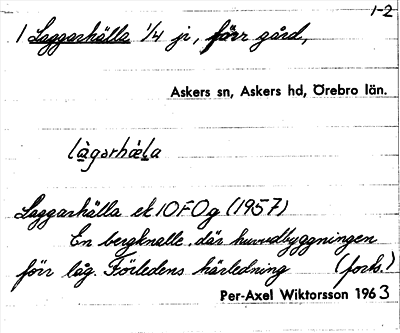 1-2
1 Laggarhälla 1/4 jr, förr gård,
Askers sn, Askers hd, Örebro län.
làgarhæla
Laggarhälla ek 10F0g (1957)
En bergknalle, där huvudbyggningen
förr låg. Förledens härledning (forts.)
Per-Axel Wiktorsson 1963